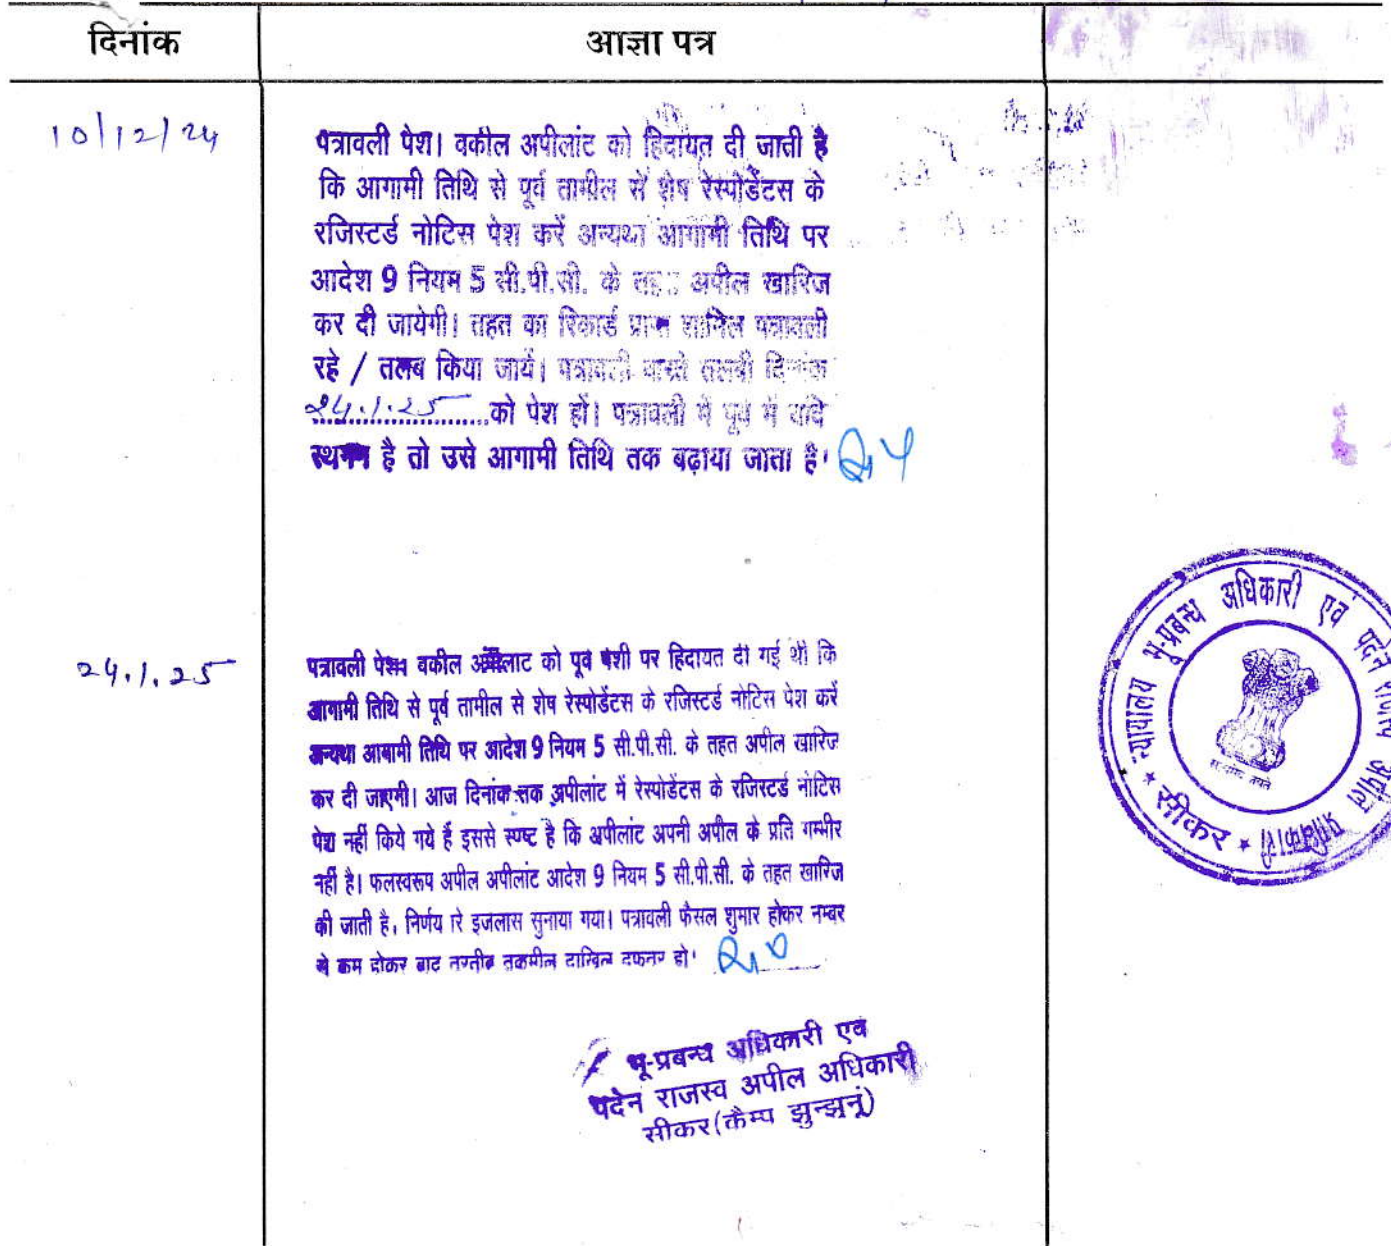 दिनांक
आज्ञा पत्र
10/12/24
पत्रावली पेश। वकील अपीलांट को हिदायत दी जाती है
कि आगामी तिथि से पूर्व तामील से शेष रेस्पोडेंटस के
रजिस्टर्ड नोटिस पेश करें अन्यथा आगामी तिथि पर
आदेश 9 नियम 5 सी.पी.सी. के तहत अपील खारिज
कर दी जायेगी। तहत का रिकार्ड प्राप्त शामिल पत्रावली
रहे / तलब किया जाये। पत्रावली वास्ते तलबी दिनांक
24.1.25 को पेश हो। पत्रावली में पूर्व में यदि
स्थगन है तो उसे आगामी तिथि तक बढ़ाया जाता है।
24.1.25
पत्रावली पेश। वकील अपीलाट को पूर्व पेशी पर हिदायत दी गई थी कि
आगामी तिथि से पूर्व तामील से शेष रेस्पोडेंटस के रजिस्टर्ड नोटिस पेश करें
अन्यथा आगामी तिथि पर आदेश 9 नियम 5 सी.पी.सी. के तहत अपील खारिज
कर दी जाएगी। आज दिनांक तक अपीलांट में रेस्पोडेंटस के रजिस्टर्ड नोटिस
पेश नहीं किये गये हैं इससे स्पष्ट है कि अपीलांट अपनी अपील के प्रति गम्भीर
नहीं है। फलस्वरूप अपील अपीलांट आदेश 9 नियम 5 सी.पी.सी. के तहत खारिज
की जाती है, निर्णय सरे इजलास सुनाया गया। पत्रावली फैसल शुमार होकर नम्बर
से कम होकर बाद तरतीब तकमील दाखिल दफ्तर हो।
भू-प्रबन्ध अधिकारी एवं
पदेन राजस्व अपील अधिकारी
सीकर (कैम्प झुन्झुनूं)
न्यायालय भू-प्रबन्ध अधिकारी एवं पदेन राजस्व अपील अधिकारी
* सीकर *